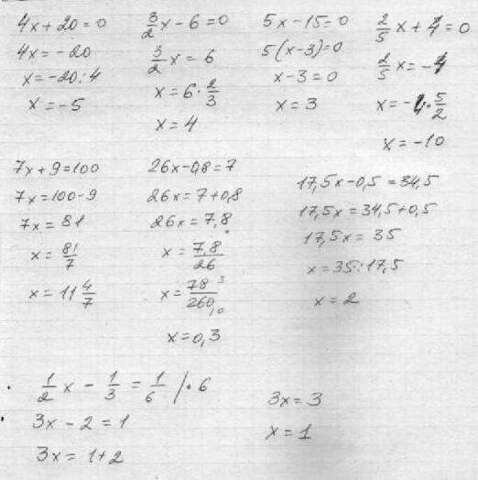 4x + 20 = 0
4x = -20
x = -20:4
x = -5
3/2 x - 6 = 0
3/2 x = 6
x = 6 · 2/3
x = 4
5x - 15 = 0
5(x-3) = 0
x - 3 = 0
x = 3
2/5 x + 4 = 0
2/5 x = -4
x = -4 · 5/2
x = -10
7x + 9 = 100
7x = 100 - 9
7x = 81
x = 81/7
x = 11 4/7
26x - 0,8 = 7
26x = 7 + 0,8
26x = 7,8
x = 7,8/26
x = 78/260
x = 0,3
17,5x - 0,5 = 34,5
17,5x = 34,5 + 0,5
17,5x = 35
x = 35:17,5
x = 2
1/2 x - 1/3 = 1/6 /· 6
3x - 2 = 1
3x = 1 + 2
3x = 3
x = 1